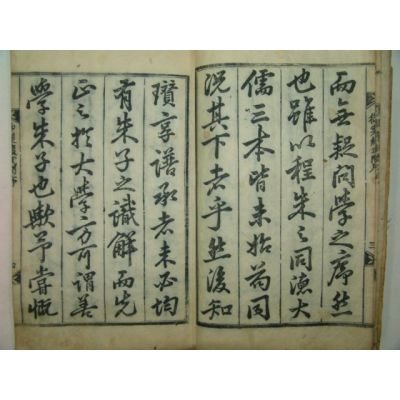 而無疑問學之序然
也雖以程朱之同漁大
儒三本皆未始為同
況其下者乎然後知
瓚享譜承者未必均
有朱子之識解而先
正之於大學方可謂善
學朱子也歟予嘗慨